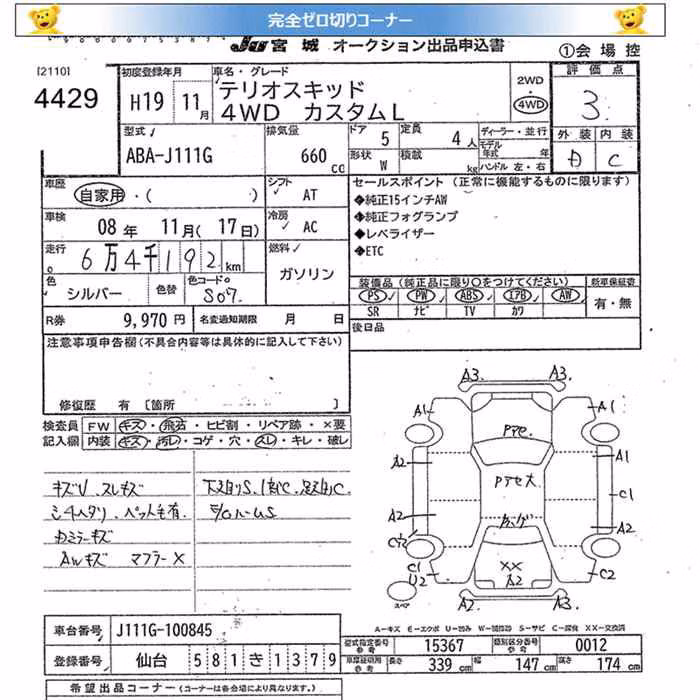 完全ゼロ切りコーナー
JU 宮城 オークション出品申込書
①会場控
[2110]
4429
初度登録年月
H19 11月
車名・グレード
テリオスキッド
4WD カスタムL
2WD
4WD
評価点
3.
外装 内装
A C
型式
ABA-J111G
排気量
660 cc
ドア 5 定員 4人
形状 W 積載 kg
ディーラー・並行
モデル年式 年
ハンドル 左・右
車歴
自家用・( )
シフト AT
車検
08年 11月(17日)
冷房 AC
走行
6万4千192km
燃料 ガソリン
色 シルバー 色替 色コードNo S07.
R券 9,970円 名変通知期限 月 日
セールスポイント (正常に機能するものに限ります)
◆純正15インチAW
◆純正フォグランプ
◆レベライザー
◆ETC
装備品(純正品に限り○をつけてください) 新車保証書
PS PW ABS エアB AW 有・無
SR ナビ TV カワ
後日品
注意事項申告欄(不具合内容等は具体的に記入して下さい)
修復歴 有 [箇所 ]
検査員記入欄 FW キズ・飛石・ヒビ割・リペア跡・×要
内装 キズ・汚レ・コゲ・穴・スレ・キレ・破レ
キズU、スレキズ
シートヘタリ、ペット毛有、
カミラーキズ
AWキズ マフラーX
A3. A3.
A1 A1
A2 A1
C1
A2 A2
C1 U2 C2
XX
A2
A2 A3
スペア
A-キズ E-エクボ U-凹み W-補修跡 S-サビ C-腐食 XX-交換済
車台番号 J111G-100845
登録番号 仙台 581き1379
型式指定番号参考 15367 類別区分番号参考 0012
車庫証明用参考 長さ 339cm 幅 147cm 高さ 174cm
希望出品コーナー(コーナーは各会場により異なります。)